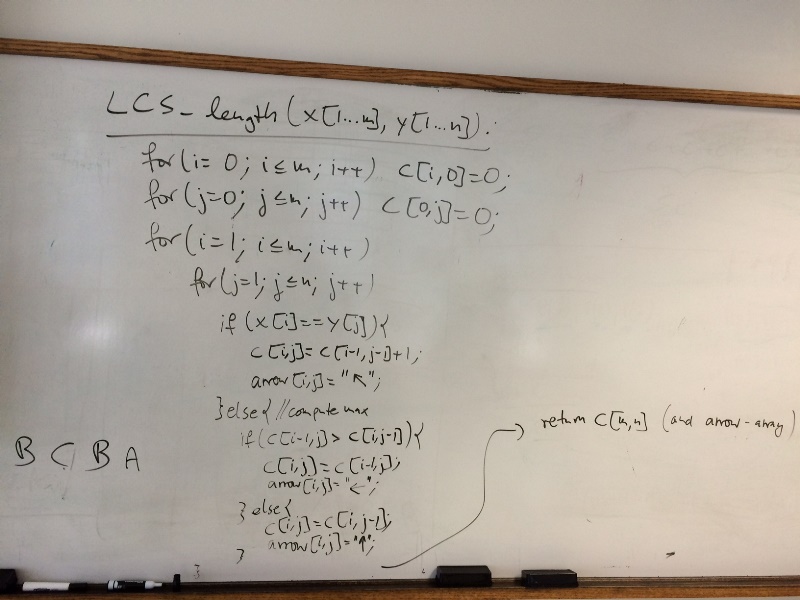 LCS-length (X[1...m], Y[1...n]):
for (i=0; i≤m; i++) C[i,0]=0;
for (j=0; j≤n; j++) C[0,j]=0;
for (i=1; i≤m; i++)
for (j=1; j≤n; j++)
if (X[i]==Y[j]){
C[i,j]=C[i-1,j-1]+1;
arrow[i,j]="↖";
}else{ //compute max
if(C[i-1,j]>C[i,j-1]){
C[i,j]=C[i-1,j];
arrow[i,j]="←";
} else{
C[i,j]=C[i,j-1];
arrow[i,j]="↑";
}
}
→ return C[m,n] (and arrow-array)
B C B A